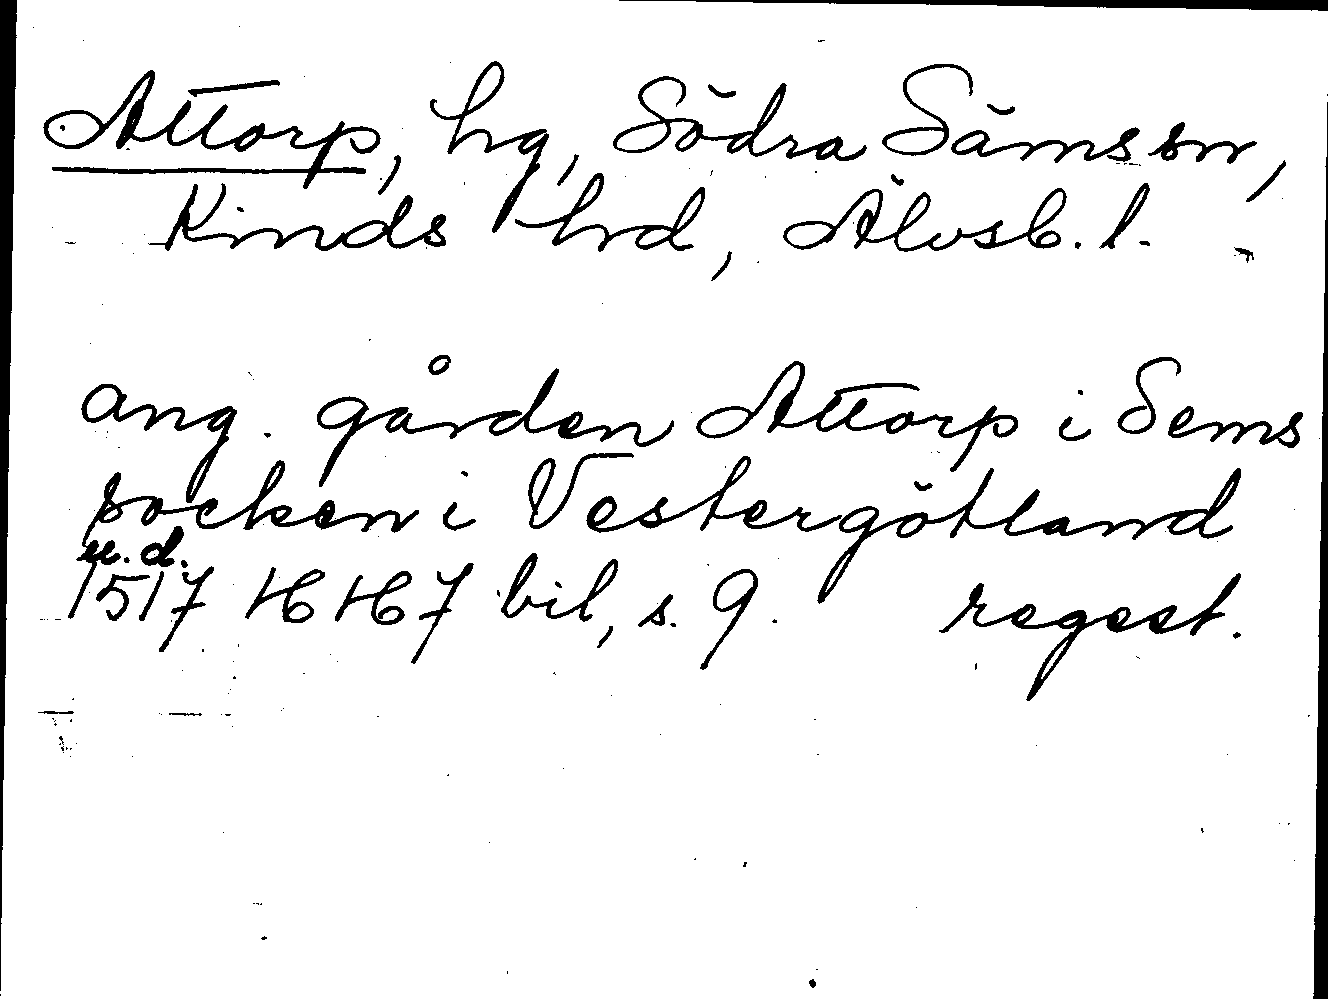 Attorp, hg, Södra Säms sn,
Kinds hrd, Älvsb. l.
ang. gården Attorp i Sems
socken i Vestergötland
u. d.
1517 HH 7 bil, s. 9. regest.